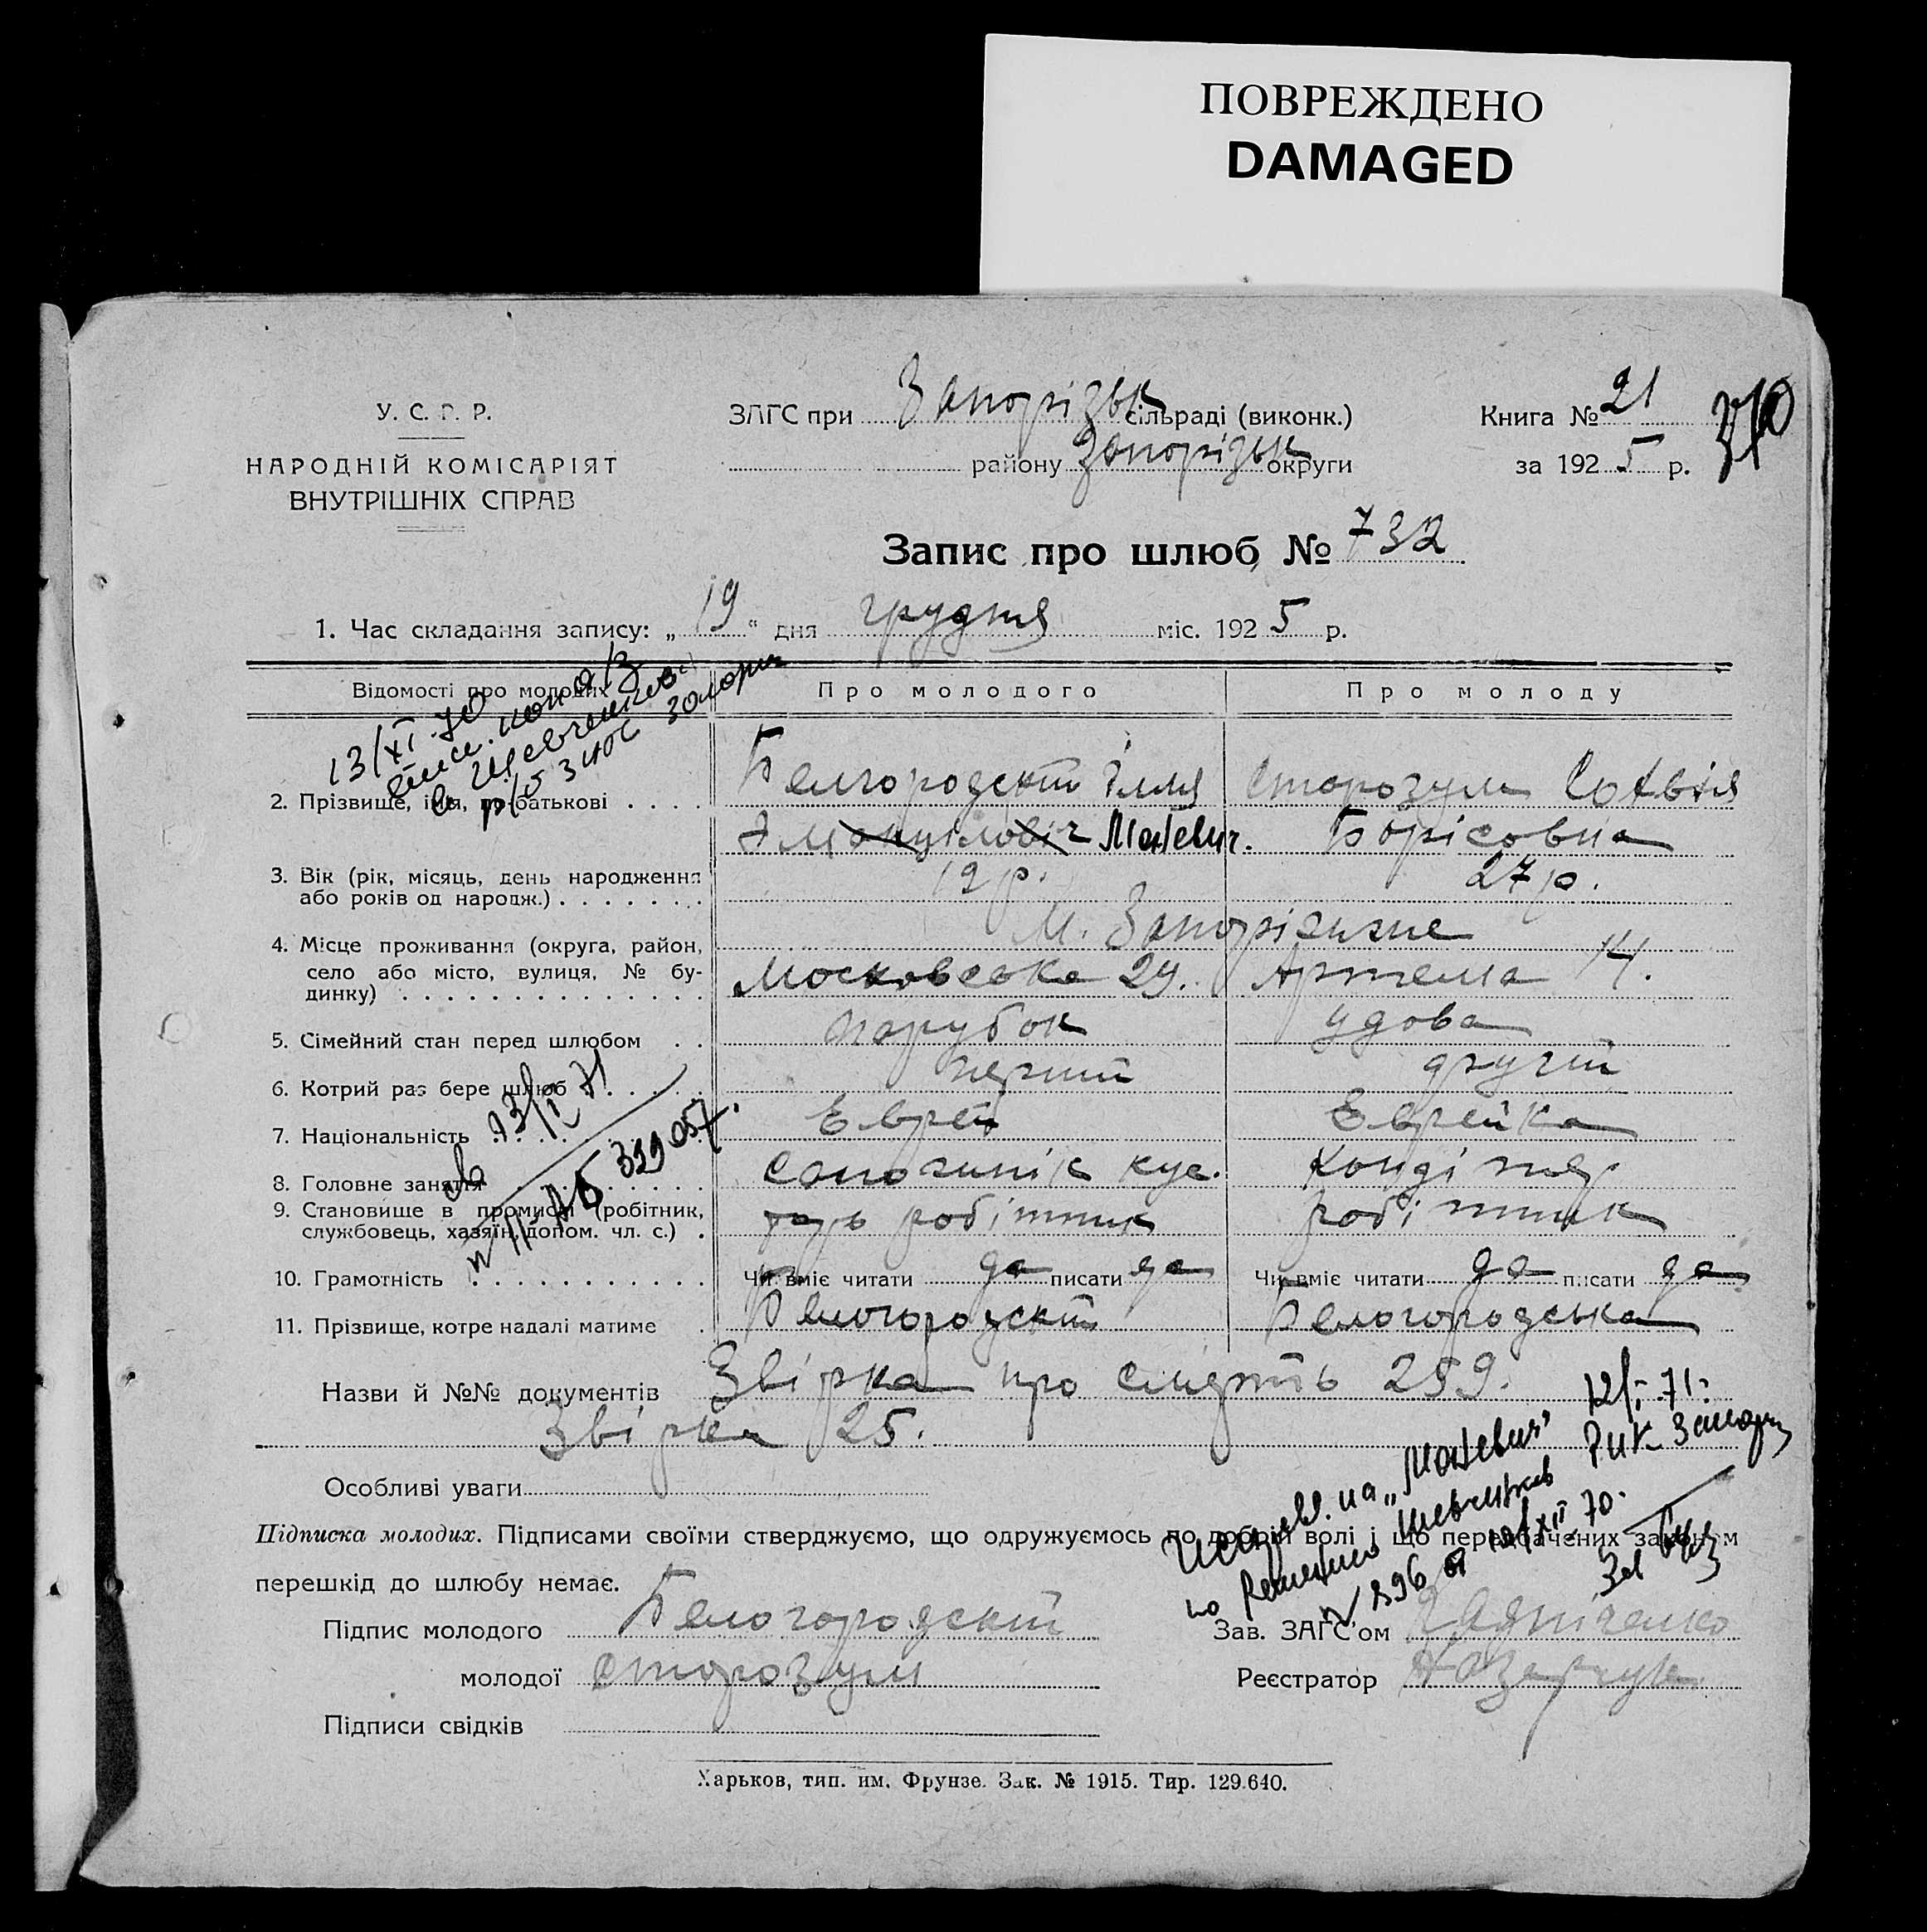 ПОВРЕЖДЕНО
DAMAGED
У. С. Р. Р.
НАРОДНІЙ КОМІСАРІЯТ
ВНУТРІШНІХ СПРАВ
ЗАГС при Запорізьк сільраді (виконк.)
району Запорізьк округи
Книга № 21
за 1925 р.
Запис про шлюб № 732
1. Час складання запису: „19“ дня грудня міс. 1925 р.
Відомості про молодих
Про молодого
Про молоду
13/XI.70
2. Прізвище, імя, по батькові . . . .
Белгородскій Ілля
Маневич.
Сторозум Софвія
Борісовна
3. Вік (рік, місяць, день народження
або років од народж.) . . . . . . .
19 р.
27 р.
4. Місце проживання (округа, район,
село або місто, вулиця, № бу-
динку) . . . . . . . . . . . . . .
М. Запоріжже
Московська 29.
Артема 14.
5. Сімейний стан перед шлюбом . .
парубок
удова
6. Котрий раз бере шлюб . . . . .
перший
другій
7. Національність
Еврей
Еврейка
8. Головне заняття
Сапожнік кус.
Кондітер
9. Становище в промислі (робітник,
службовець, хазяїн, допом. чл. с.) .
робітник
робітник
10. Грамотність . . . . . . . . . . .
Чи вміє читати да писати да
Чи вміє читати да писати да
11. Прізвище, котре надалі матиме .
Белогородскій
Белогородська
Назви й №№ документів Звірка про смерть 259.
Звірка 25.
Особливі уваги
на „Маневич”
Підписка молодих. Підписами своїми стверджуємо, що одружуємось по добрій волі і що передбачених законом
перешкід до шлюбу немає.
Підпис молодого Белогородскій
молодої Сторозум
Підписи свідків
Зав. ЗАГС'ом
Реєстратор
Харьков, тип. им. Фрунзе. Зак. № 1915. Тир. 129.640.